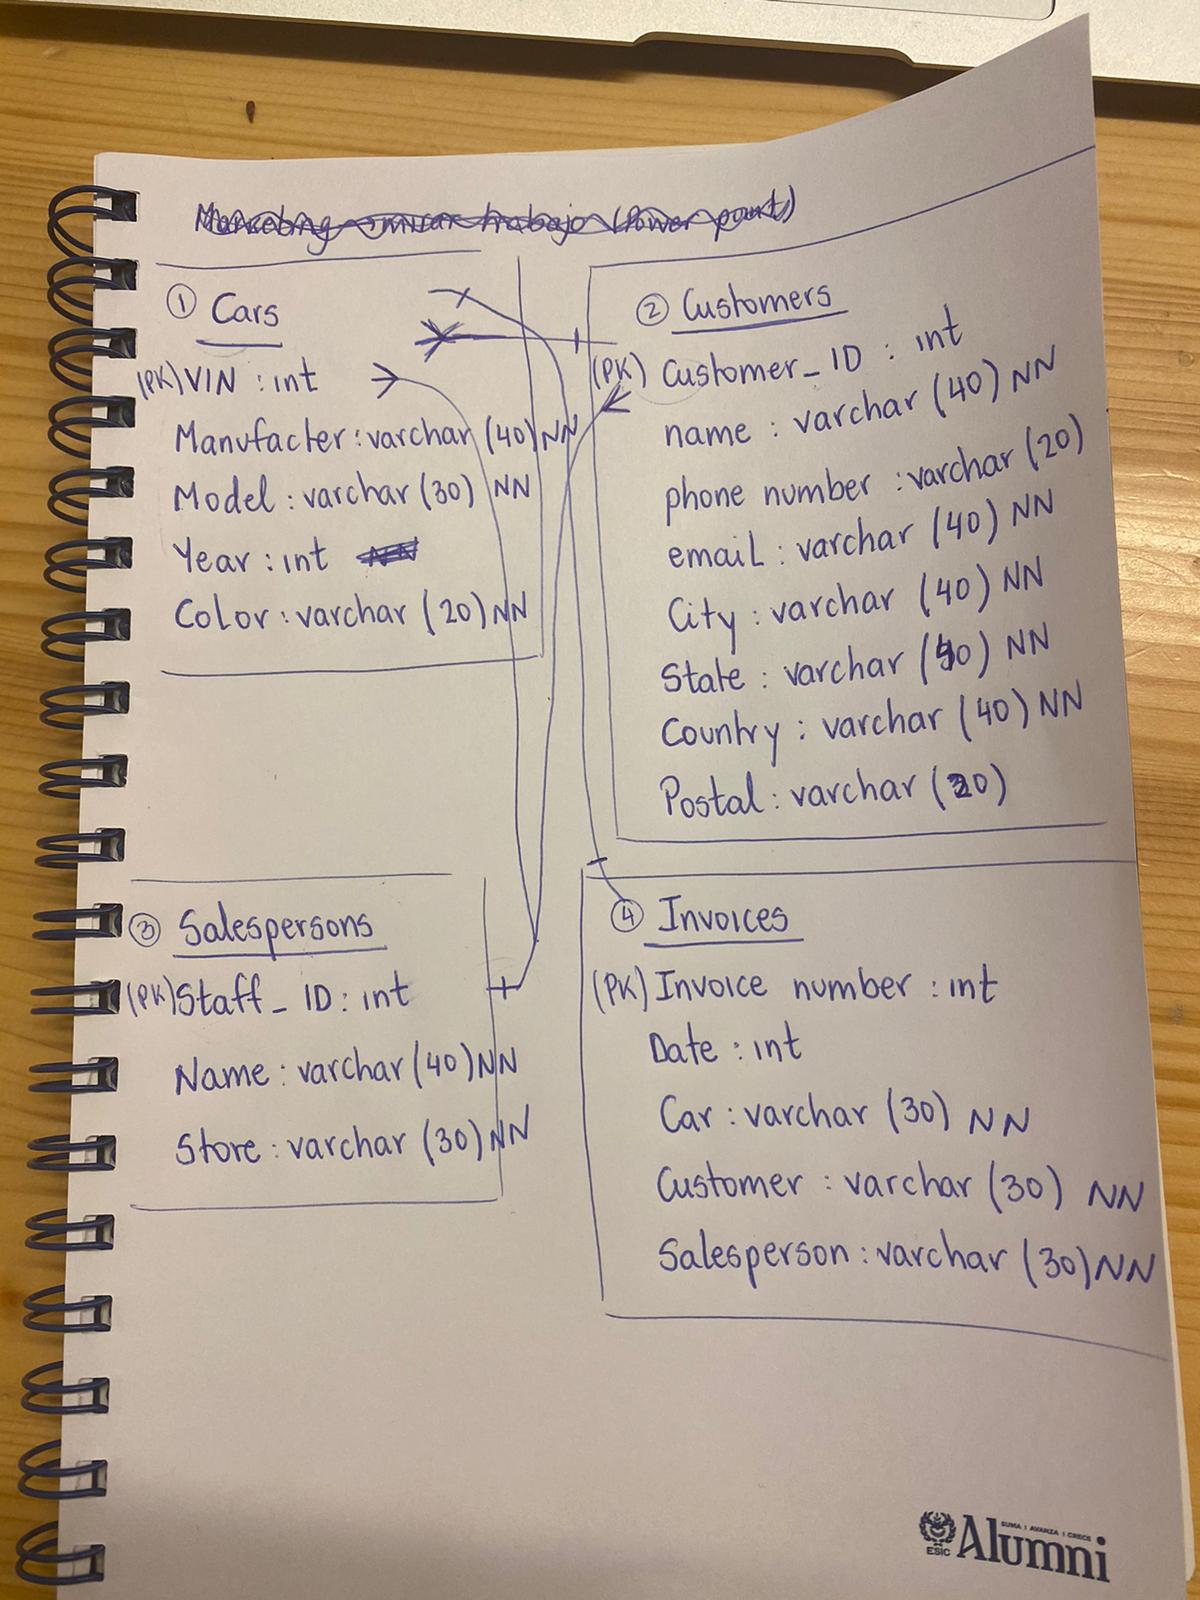 Marketing enviar trabajo (Power point)
① Cars
(PK) VIN : int
Manufacter : varchar (40) NN
Model : varchar (30) NN
Year : int NN
Color : varchar (20) NN
② Customers
(PK) Customer_ID : int
name : varchar (40) NN
phone number : varchar (20)
email : varchar (40) NN
City : varchar (40) NN
State : varchar (40) NN
Country : varchar (40) NN
Postal : varchar (20)
③ Salespersons
(PK) Staff_ID : int
Name : varchar (40) NN
Store : varchar (30) NN
④ Invoices
(PK) Invoice number : int
Date : int
Car : varchar (30) NN
Customer : varchar (30) NN
Salesperson : varchar (30) NN
ESIC
SUMA | AVANZA | CRECE
Alumni